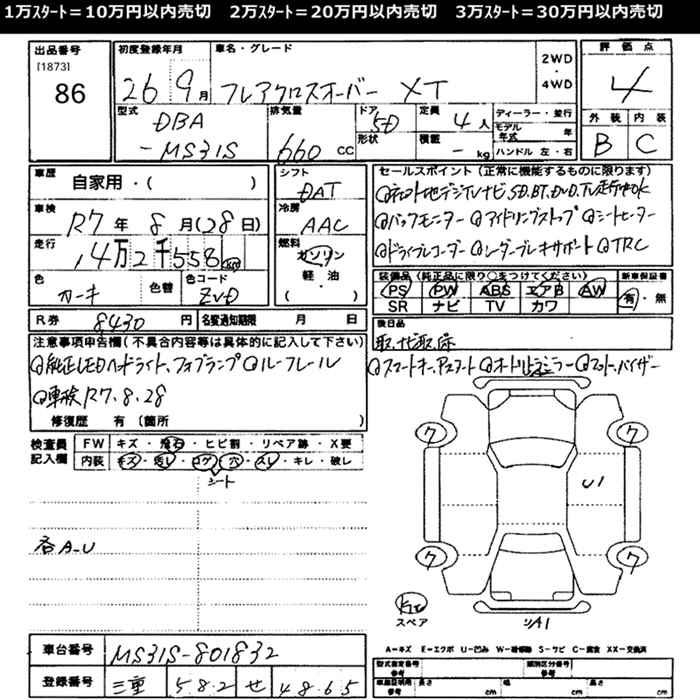 1万スタート＝10万円以内売切　2万スタート＝20万円以内売切　3万スタート＝30万円以内売切
出品番号
[1873]
86
初度登録年月
26 9月
車名・グレード
フレアクロスオーバー XT
2WD
・
4WD
評価点
4
外装 内装
B C
型式
DBA
-MS31S
排気量
660 CC
ドア 5D
形状
定員 4人
積載 - kg
ディーラー・並行
モデル年式 年
ハンドル 左・右
車歴
自家用・( )
車検
R7年 8月(28日)
走行
4万2千558 km
色
カーキ
色替
色コード
ZVD
シフト
DAT
冷房
AAC
燃料
ガソリン
軽・油
( )
セールスポイント (正常に機能するものに限ります)
◎ネット地デジTVナビ、SD.BT.DVD.TV走行中OK
◎バックモニター ◎アイドリングストップ ◎シートヒーター
◎ドライブレコーダー ◎レーダーブレーキサポート ◎TRC
装備品 (純正品に限り○をつけてください)
PS PW ABS エアB AW
SR ナビ TV カワ
新車保証書
有・無
R券 8430 円
名変通知期限 月 日
後日品
取、ナビ取、保
注意事項申告欄(不具合内容等は具体的に記入して下さい)
◎純正LEDヘッドライト、フォグランプ ◎ルーフレール
◎車検R7.8.28
修復歴 有 (箇所 )
◎スマートキー、アスタート ◎オートリトラミラー ◎フットバイザー
検査員記入欄
FW キズ・飛石・ヒビ割・リペア跡・X要
内装 キズ・汚レ・コゲ・穴・スレ・キレ・破レ
シート
各A-U
ワ ワ
U1
ワ ワ
スペア
シA1
A−キズ E−エクボ U−凹み W−補修跡 S−サビ C−腐食 XX−交換済
車台番号 MS31S-801832
登録番号 三重 582 せ 4865
型式指定番号 参考
類別区分番号 参考
車庫証明用 参考 長さ cm 幅 cm 高さ cm